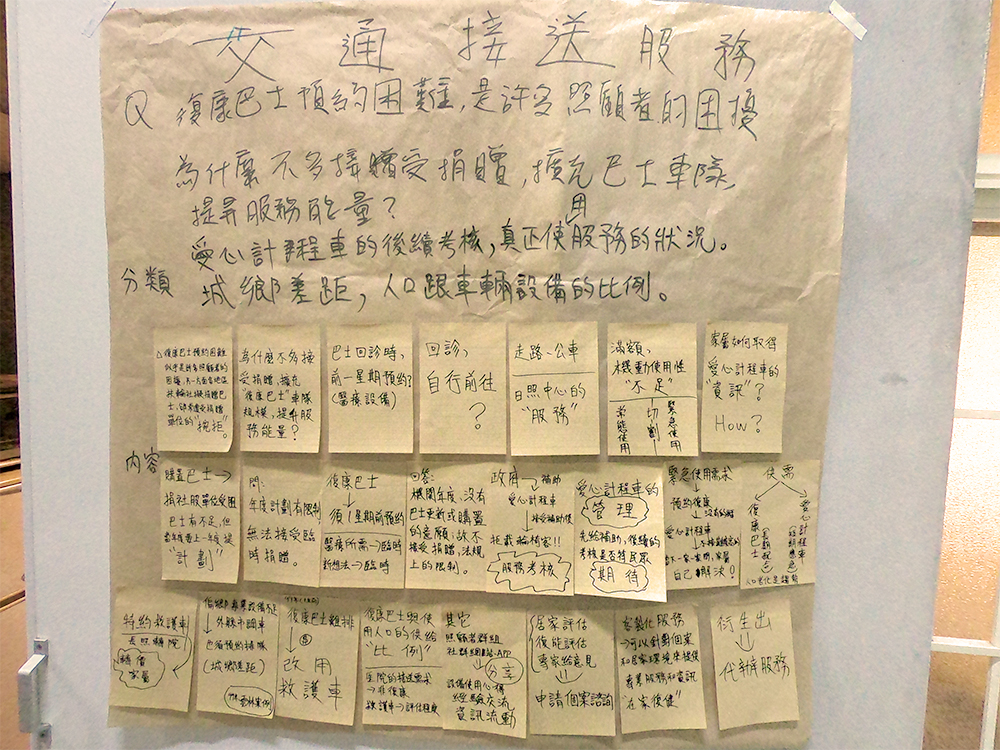 交通接送服務
Q 復康巴士預約困難,是許多照顧者的困擾
為什麼不多接贈受捐贈,擴充巴士車隊,
提昇服務能量?
愛心計程車的後續考核,真正使用服務的狀況。
分類 城鄉差距,人口跟車輛設備的比例。
復康巴士預約困難
似乎是許多照顧者的
困擾,
士,
單位的"婉拒"。
為什麼不多接
受捐贈,擴充
"復康巴士"車隊
規模,提昇服
務能量?
巴士回診時,
前一星期預約?
(醫療設備)
回診,
自行前往
?
走路、公車
日照中心的
"服務"
滿額,
機動使用性
"不足"
常態使用
切割
緊急使用
家屬如何取得
愛心計程車的
"資訊"?
How?
內容
購置巴士→
捐社服單位受困
巴士有不足,但
"計劃"
問:
年度計劃有限制
無法接受臨
時捐贈。
復康巴士
須1星期前預約
醫療所需→臨時
新想法→臨時
回答:
機關年度,沒有
巴士更新或購置
的意願;故不
接受捐贈,法規
上的限制。
政府→補助
愛心計程車
→接受補助後
拒載輪椅客!!
服務考核
愛心計程車的
管理
先給補助,後續的
考核是否特民眾
期待
緊急使用需求
預約復康
愛心計程車
自己解決!
使需
復康巴士
愛心計程車
人口老化是趨勢
特約救護車
長照轉院
(城鄉差距)
復康巴士難排
改用
救護車
復康巴士與使
用人口的供給
"比例"
醫院的接送需求
→非復康
救護車→評估程車
其它
照顧者群組
社群網路、APP
分享
設備使用心得
經驗交流
資訊流動
居家評估
復能評估
專家給意見
申請個案諮詢
客製化服務
→可以針對個案
和居家環境來提供
專業服務和資訊
"在家復健"
衍生出
代辦服務